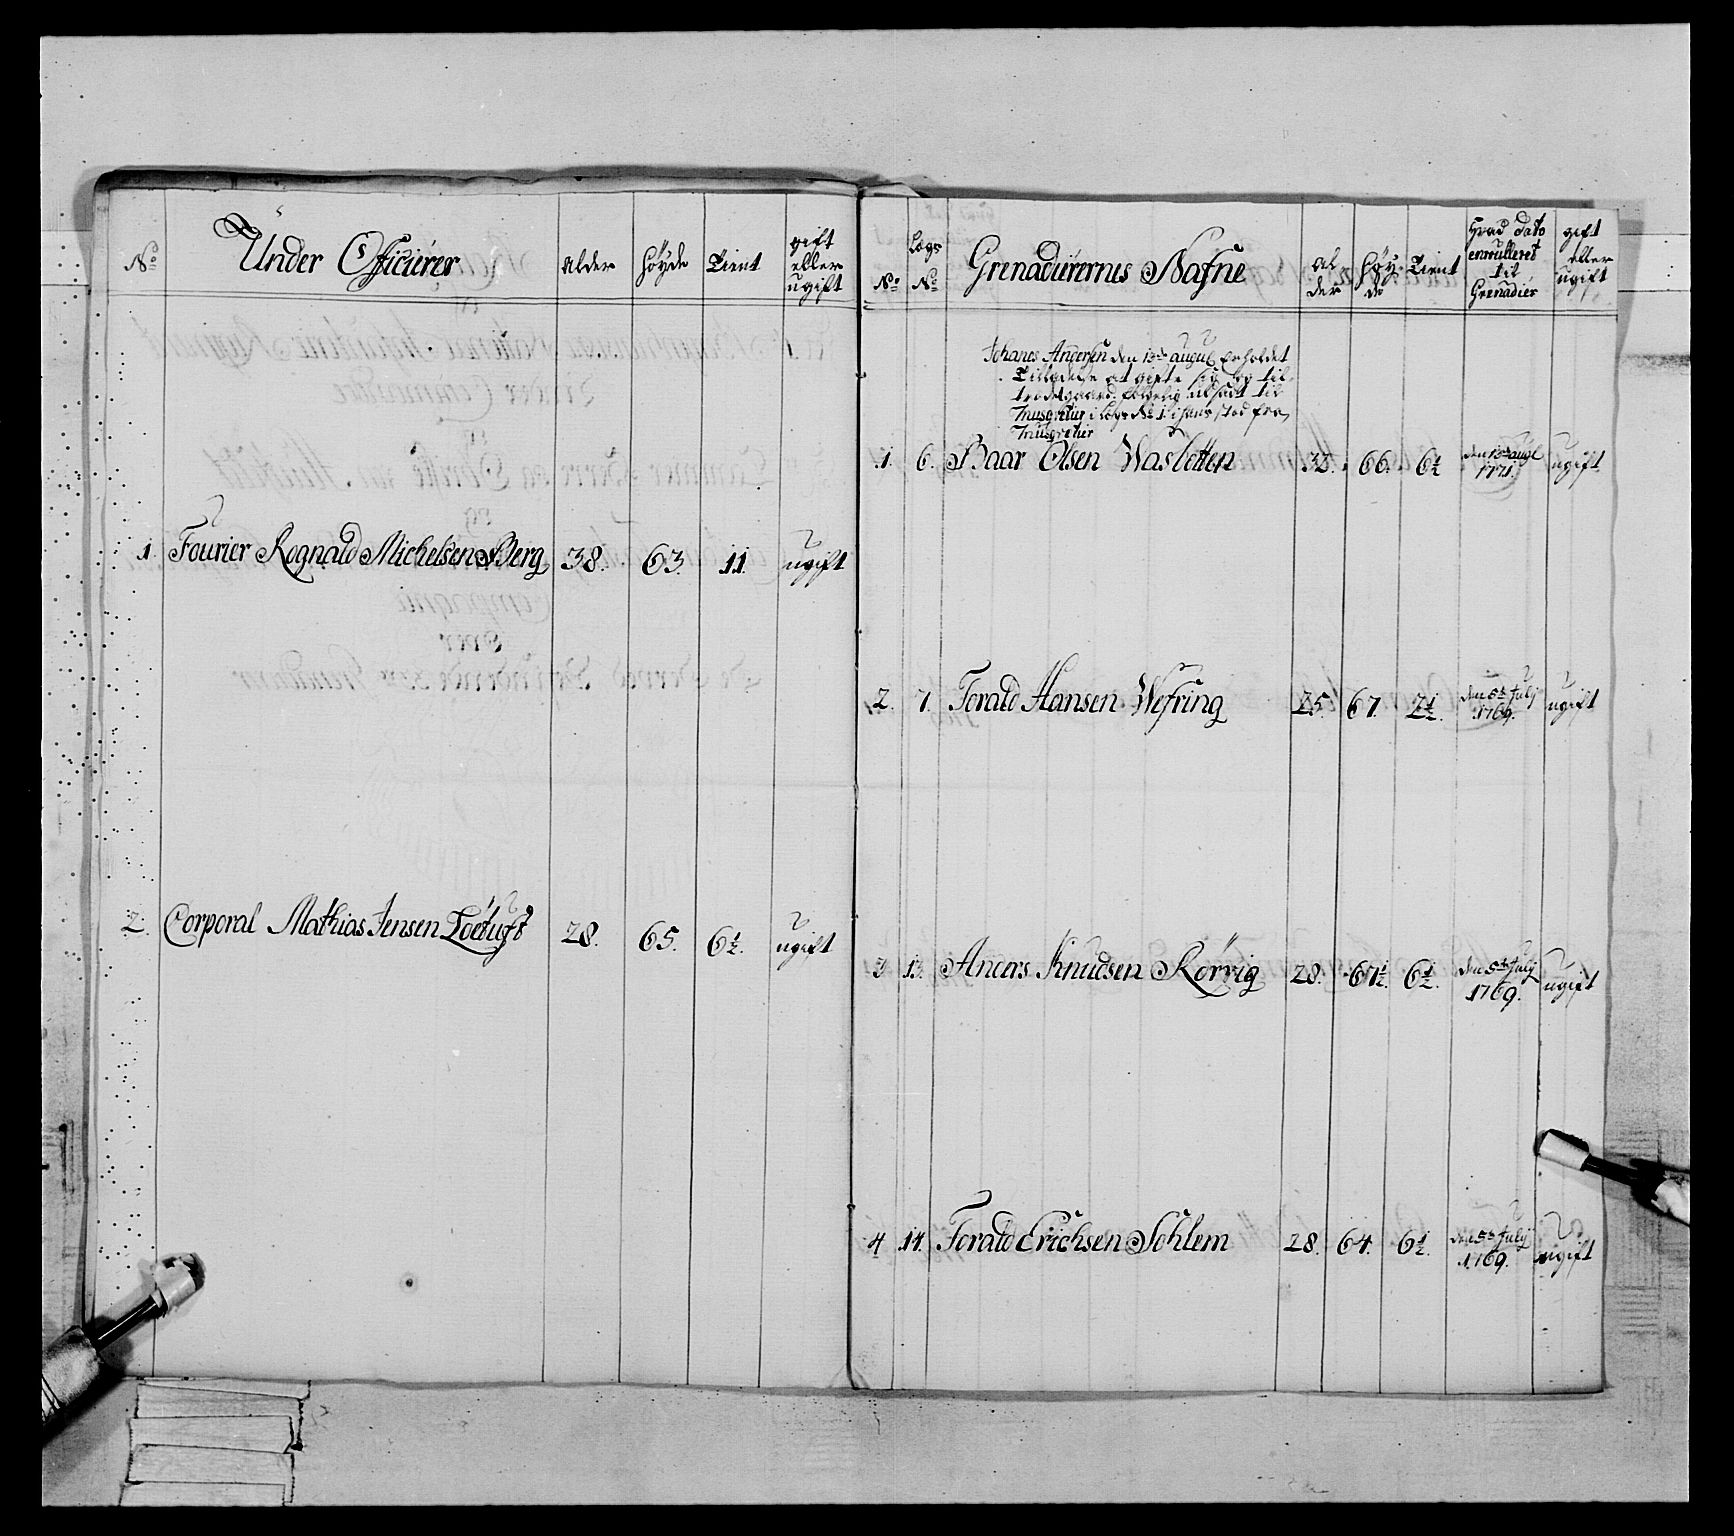 No Under Officiérer Alder Höyde Tient gift eller ugift
1. Fourier Rognald Michelsen Berg 38. 63. 11. ugift
2. Corporal Mathias Jensen 28. 65. 6½. ugift
No Lægs No Grenadiérernes Nafne Alder Höyde Tient Hvad Dato enrulleret til Grenadiér gift eller ugift
Johanes Andersen den 13de august erholdet
Tilladelse at gifte sig og til-
trædet gaard, følgelig udsadt til
Musqvetier i Legd No 1. i hans stæd fra
Musqvetier
1. 6. Baar Olsen 32. 66. 6½ den 13de augst 1771. ugift
2. 7. Torald Hansen Wefring 25. 67. 2½. den 5te July 1769. ugift
3 13. Anders Knudsen Rörvig 28. 67½. 6½. den 5te July 1769. ugift
4 14. Torald Erichsen Sohlem 28. 64. 6½. den 5te July 1769. ugift